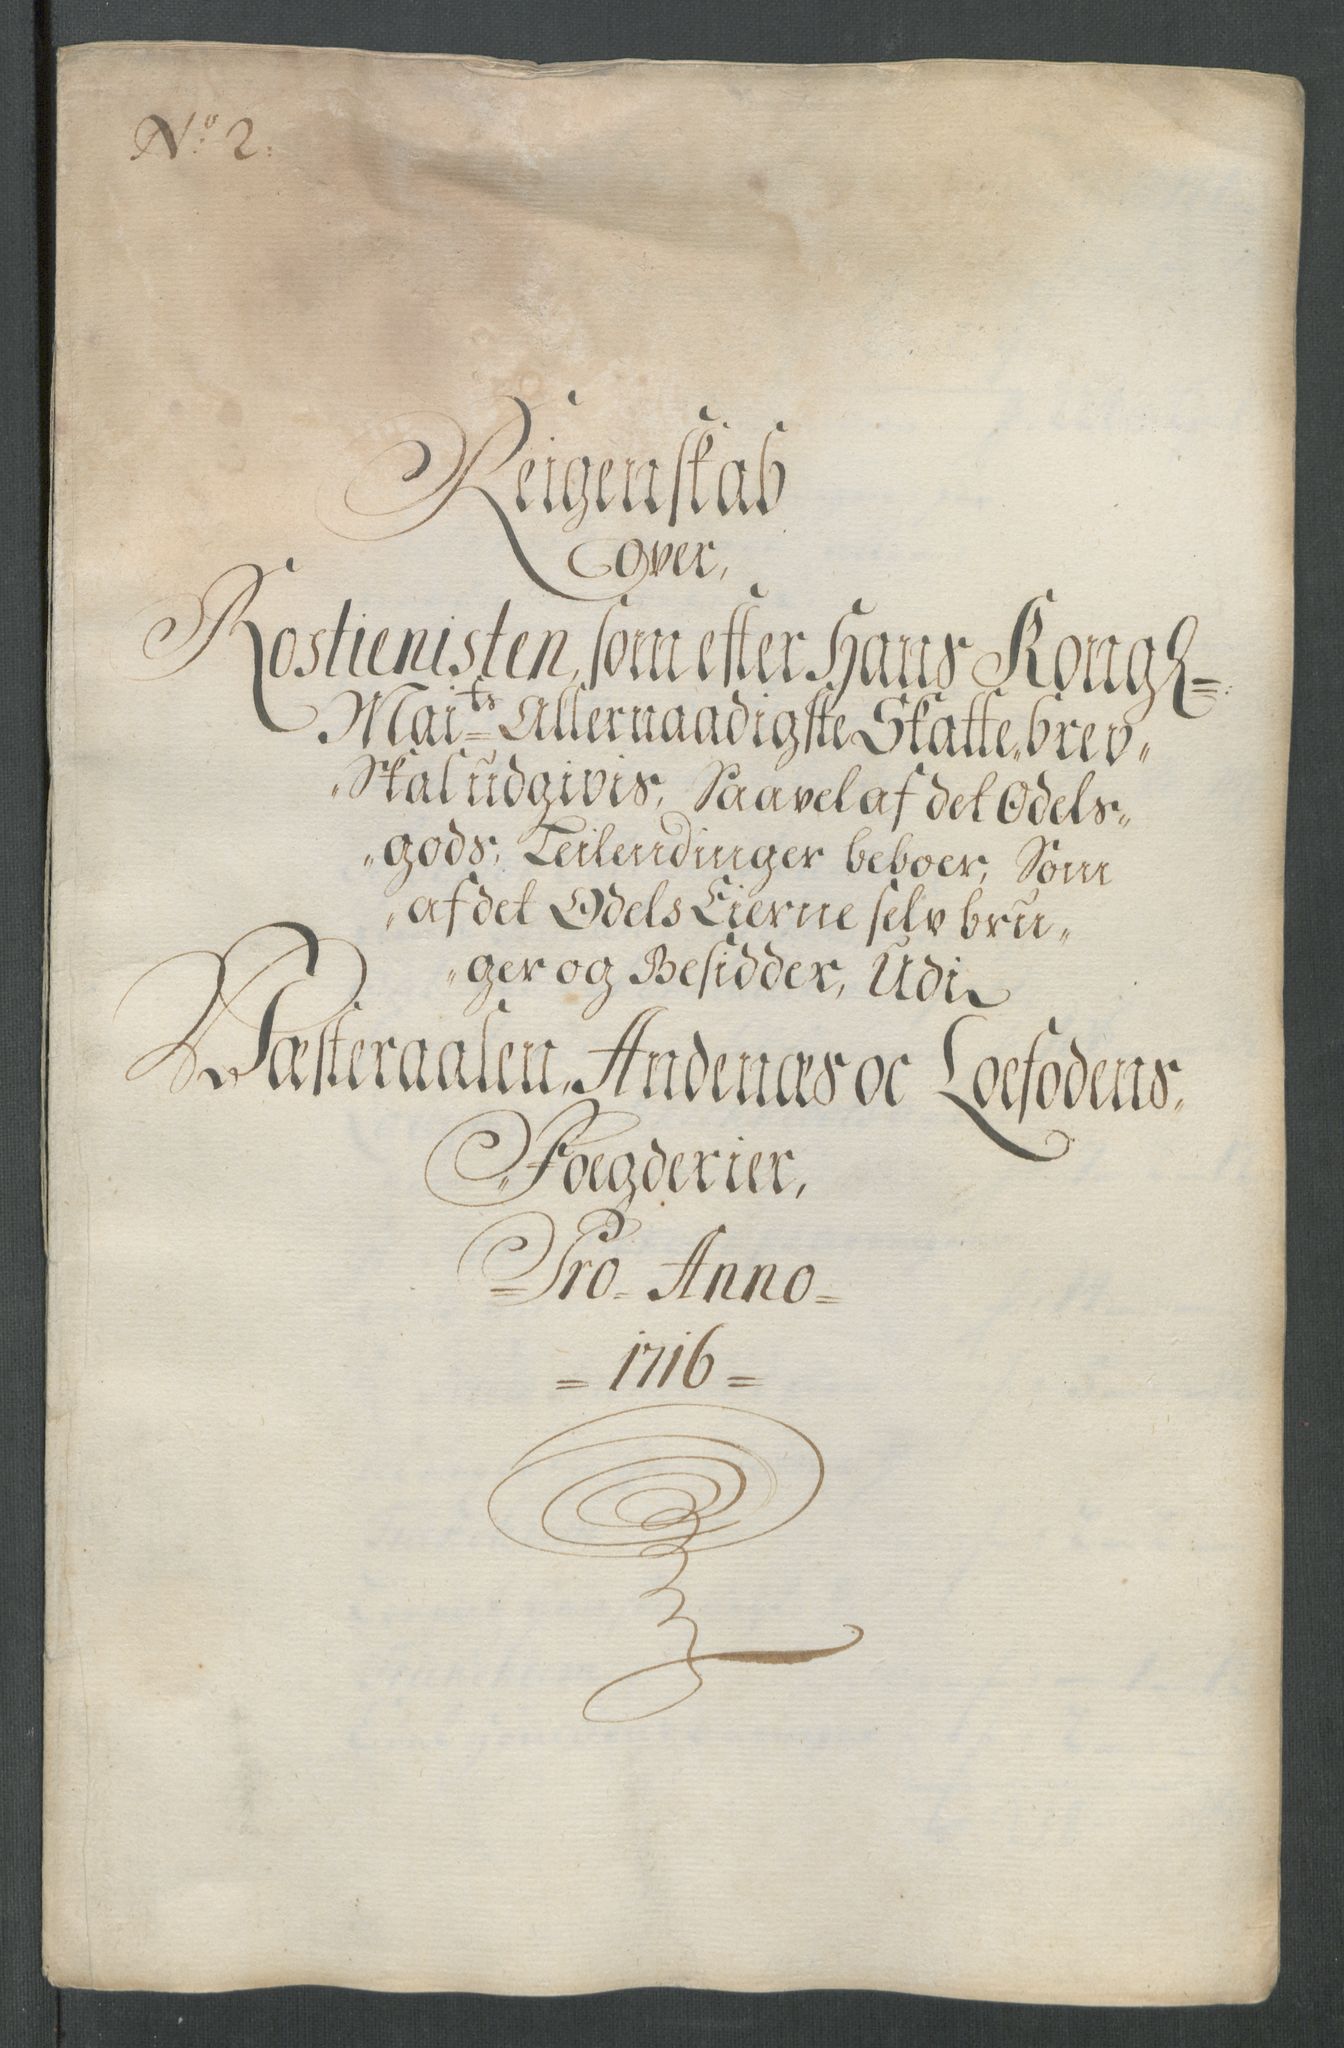 No 2.
Reigenskab
Over,
Rostienisten, som efter Hans Kongl=
Maits Allernaadigste Skatte,,brev,,
,,Skal udgivis, Saavel af det Odels,,
,,gods, Leilendinger beboer, Som
,,af det Odels Eierne selv bru,,
,,ger og Besidder, Udi
Væsteraalen, Andenæs oc Loefodens,,
Foegderier,
=Pro= Anno=
=1716=